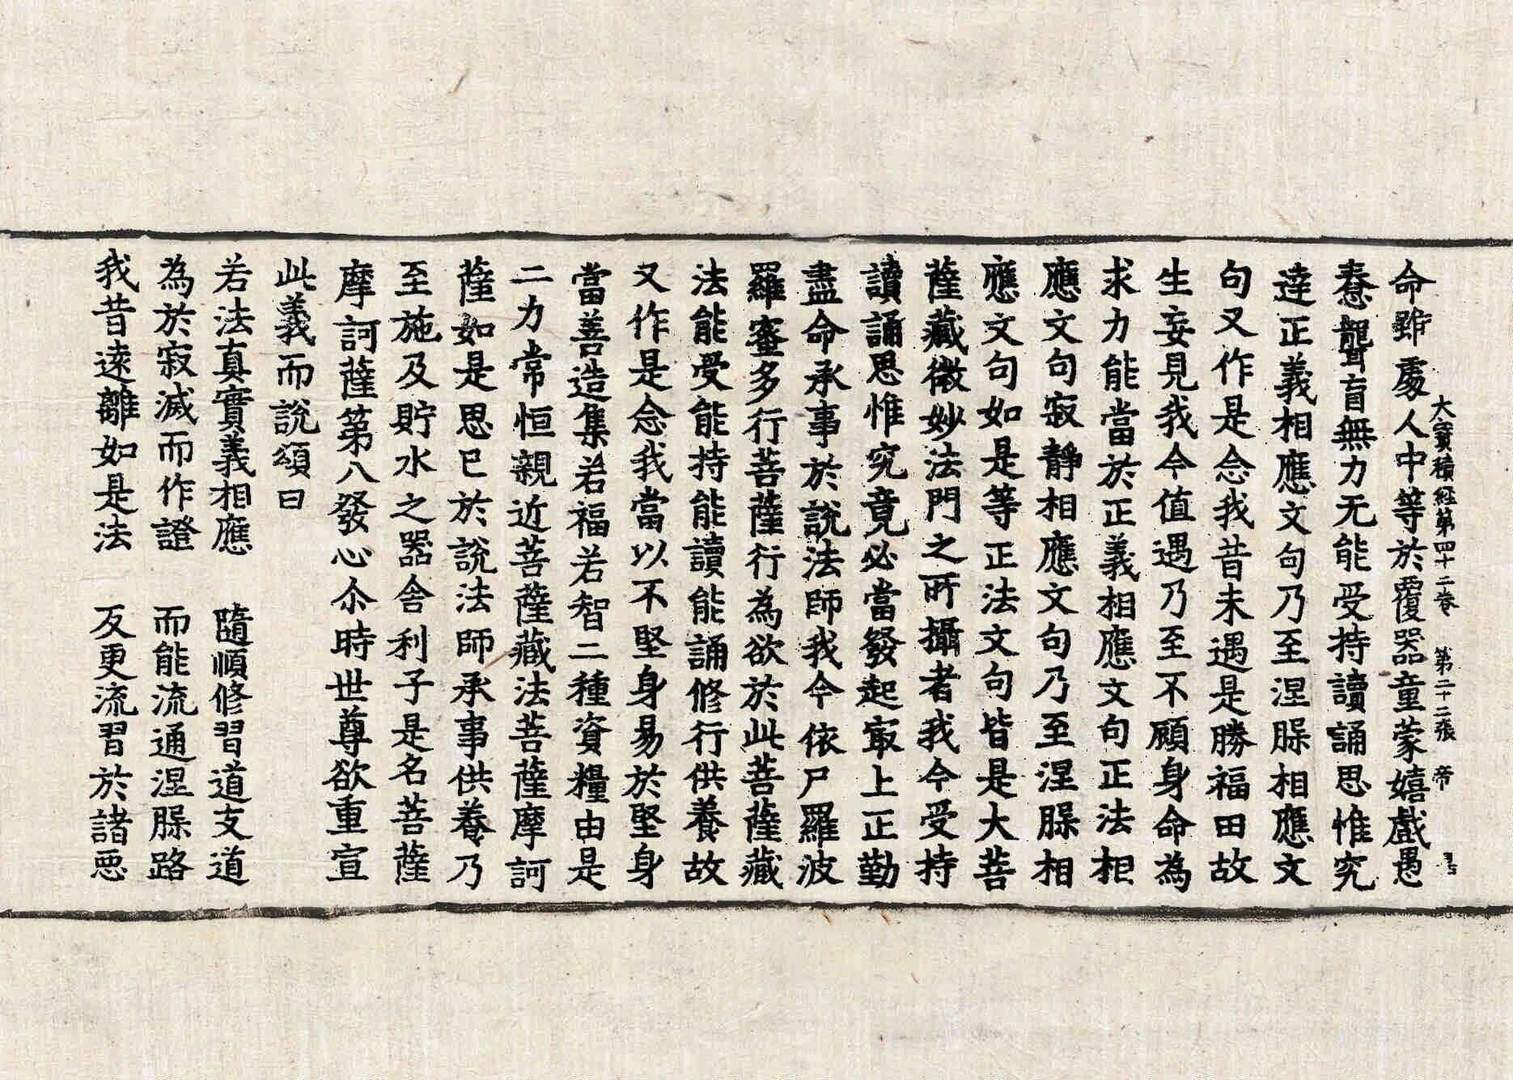 大寶積經第四十二卷 第二十二張 帝
命雖處人中等於覆器童蒙嬉戲愚
憃聾盲無力无能受持讀誦思惟究
達正義相應文句乃至涅脲相應文
句又作是念我昔未遇是勝福田故
生妄見我今值遇乃至不顧身命為
求力能當於正義相應文句正法相
應文句寂靜相應文句乃至涅脲相
應文句如是等正法文句皆是大菩
薩藏微妙法門之所攝者我今受持
讀誦思惟究竟必當發起㝡上正勤
盡命承事於說法師我今依尸羅波
羅蜜多行菩薩行為欲於此菩薩藏
法能受能持能讀能誦修行供養故
又作是念我當以不堅身易於堅身
當善造集若福若智二種資糧由是
二力常恒親近菩薩藏法菩薩摩訶
薩如是思已於說法師承事供養乃
至施及貯水之器舍利子是名菩薩
摩訶薩第八發心尒時世尊欲重宣
此義而說頌曰
若法真實義相應 隨順修習道支道
為於寂滅而作證 而能流通涅脲路
我昔遠離如是法 反更流習於諸惡